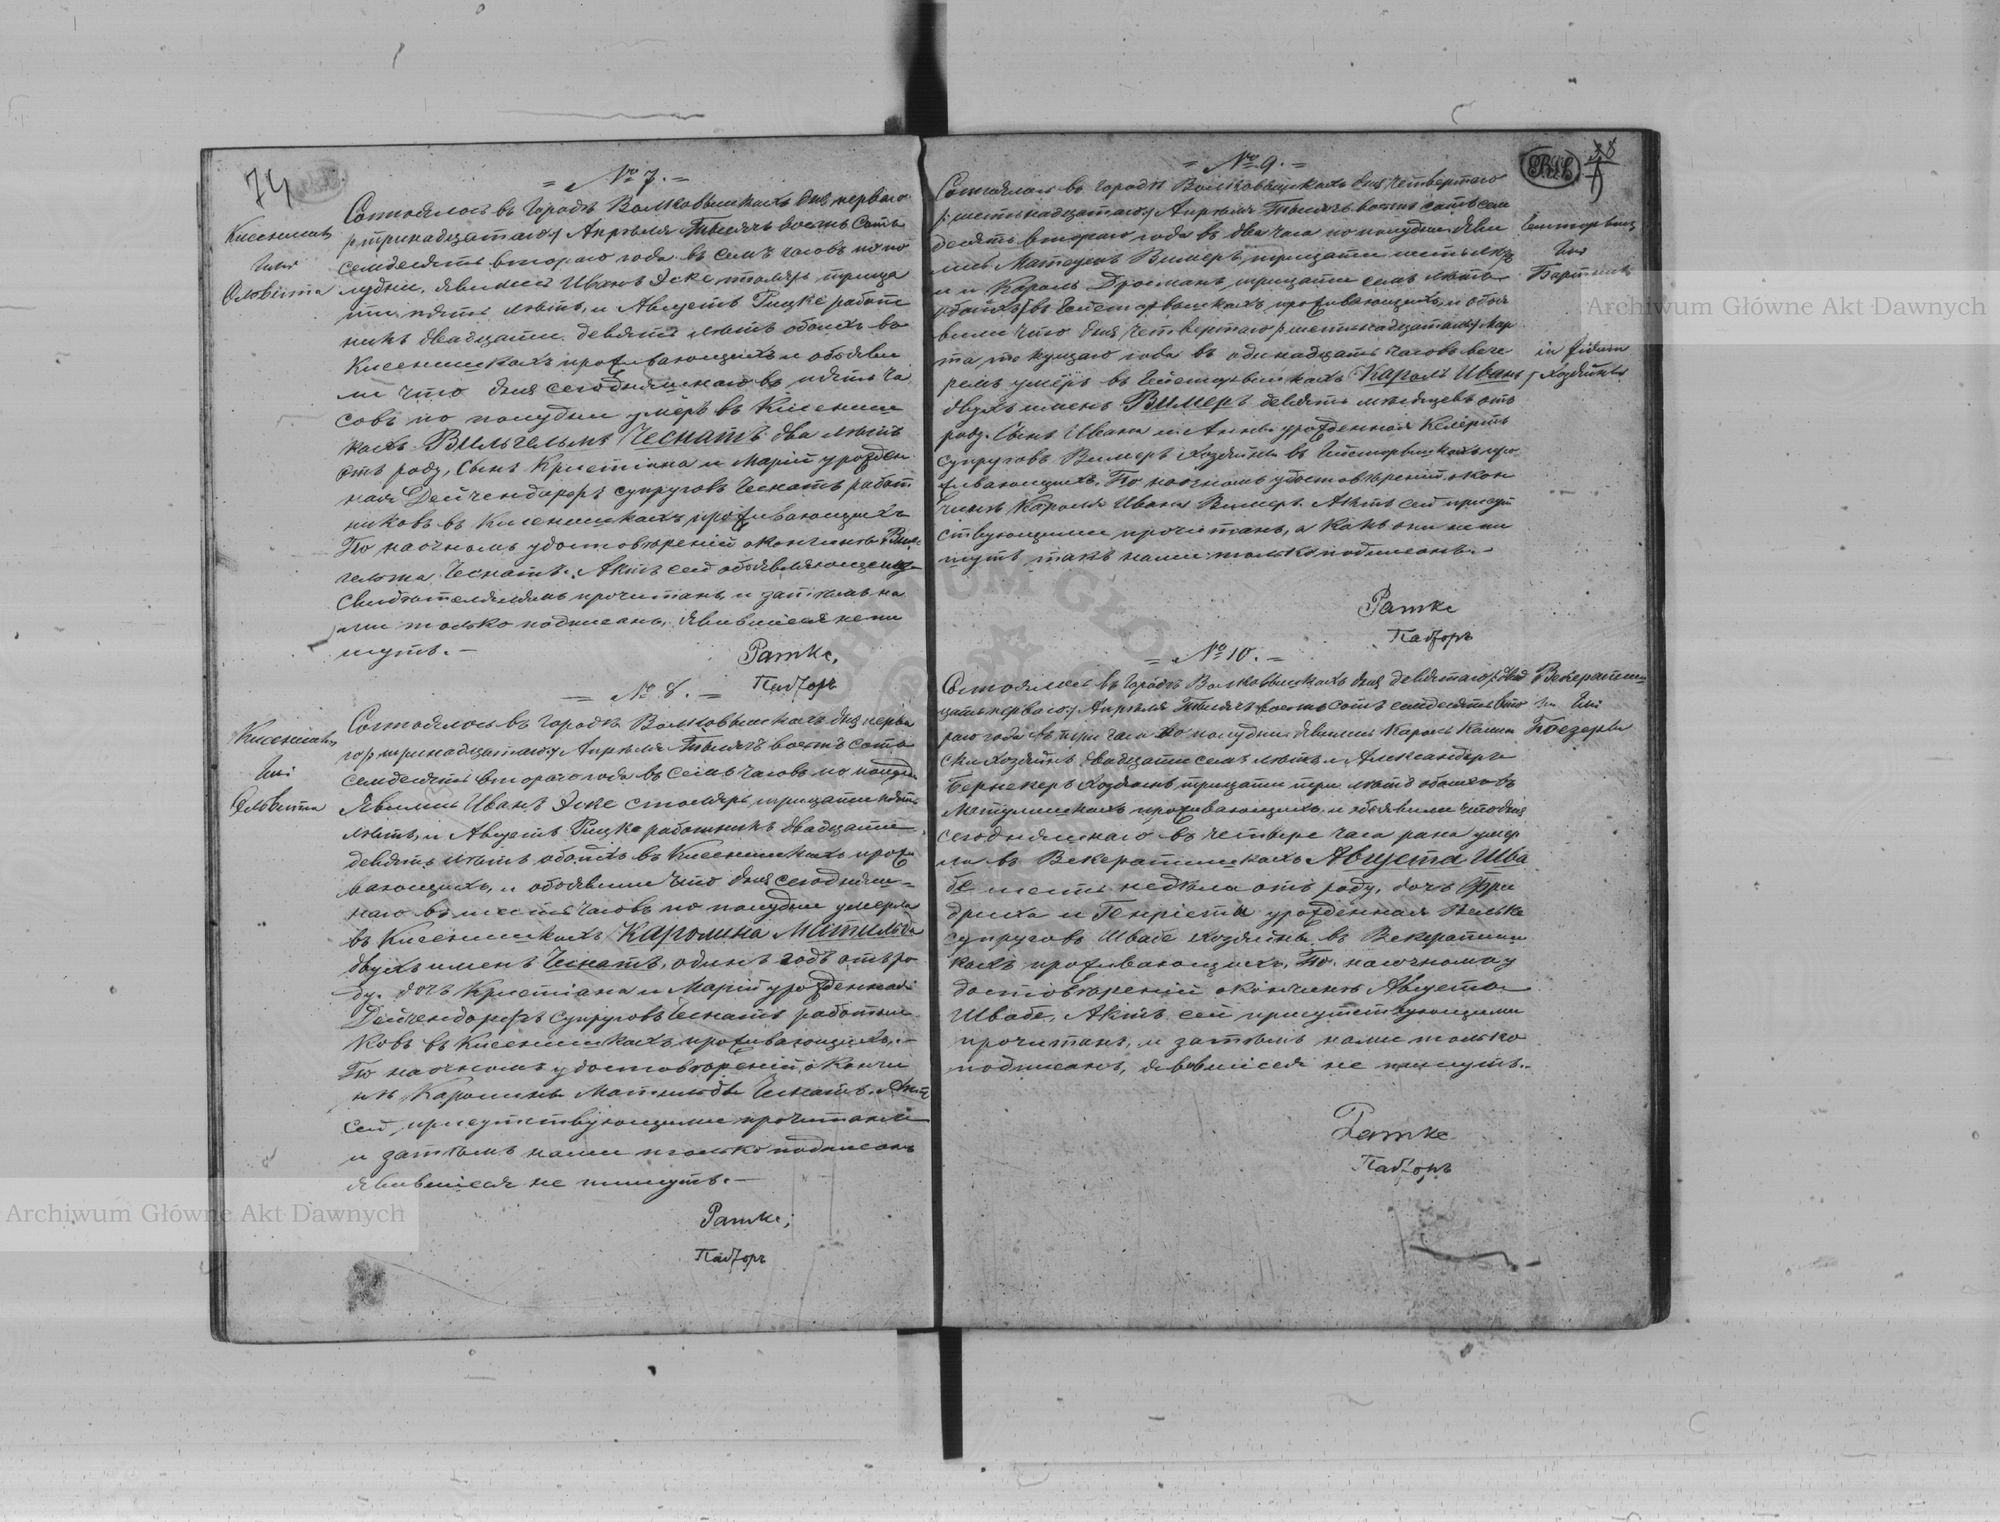 74
№ 7.
Кисенишки
Гми
Оловита
Состоялось въ городѣ Волковышкахъ дня перваго
/:тринадцатаго:/ Апрѣля Тысяча восемь сотъ
семдесятъ втораго года въ семъ часовъ по по
лудни, явились Иванъ Эске столяръ трица
ти пяти лѣтъ, и Августъ Рицке работ
никъ двадцати девяти лѣтъ обоихъ въ
Кисенишкахъ проживающихъ и объяви
ли что дня сегодняшнаго въ пять ча
совъ по полудни умеръ въ Кисениш
кахъ Вильгельмъ Чеснатъ два лѣтъ
отъ роду, сынъ Кристіана и Маріи урожден
ная Дейчендорфъ супруговъ Чеснатъ работ
никовъ въ Кисенишкахъ проживающихъ
По наочномъ удостовѣреніи о кончинѣ Виль
гельма Чеснатъ. Актъ сей объявляющему
свидѣтелямъ прочитанъ и затѣмъ на
ми только подписанъ, явившіеся не пи
шутъ.
Ратке,
Пасторъ
№ 8.
Кисенишки
Гми
Оловита
Состоялось въ городѣ Волковышкахъ дня перва
го /:тринадцатаго:/ Апрѣля Тысяча восемь сотъ
семдесятъ втораго года въ семъ часовъ по полудни
Явились Иванъ Эске столяръ, трицати пяти
лѣтъ, и Августъ Рицке работникъ двадцати
девять лѣтъ обоихъ въ Кисенишкахъ прожи
вающихъ, и объявили что дня сегодняш=
наго въ шесть часовъ по полудни умерла
въ Кисенишкахъ Каролина Матильда
двухъ именъ Чеснатъ, одинъ годъ отъ ро
ду, дочь Кристіана и Маріи урожденной
Дейчендорфъ супруговъ Чеснатъ работни
ковъ въ Кисенишкахъ проживающихъ.
По наочномъ удостовѣреніи о кончи
нѣ Каролины Матильды Чеснатъ. Актъ
сей присутствующими прочитанъ
и затѣмъ нами только подписанъ
явившіеся не пишутъ.
Ратке,
Пасторъ
38
№ 9.
Гми
Бартники
Состоялось въ городѣ Волковышкахъ дня четвертаго
/:шестьнадцатаго:/ Апрѣля Тысяча восемь сотъ сем
десятъ втораго года въ два часа по полудни. Яви
лись Матеушъ Вимеръ, трицати шесть лѣтъ
и Кароль Дросманъ, трицати семъ лѣтъ
обоихъ въ проживающихъ и объя
вили что дня четвертаго /:шестьнадцатаго:/ Мар
та текущаго года въ одинадцать часовъ вече
ремъ умеръ въ Кароль Иванъ
двухъ именъ Вимеръ девять мѣсяцевъ отъ
роду. Сынъ Ивана и Анны урожденная Келертъ
супруговъ Вимеръ хозяйны въ про
живающихъ, По наочномъ удостовѣреніи о кон
чинѣ Кароля Ивана Вимеръ. Актъ сей присут
ствующими прочитанъ, а какъ они не пи
шутъ такъ нами только подписанъ.
Ратке
Пасторъ
№ 10.
Векератишки
Гми
Состоялось въ городѣ Волковышкахъ дня девятаго /:двад
цать перваго:/ Апрѣля Тысяча восемь сотъ семдесятъ вто
раго года въ три часа по полудни Явились Кароль
хозяинъ двадцати семъ лѣтъ и Александеръ
Бернекеръ хозяинъ трицати три лѣтъ обоихъ въ
Матулишкахъ проживающихъ и объявили что дня
сегодняшнаго въ четыре часа рана умер
ла въ Векератишкахъ Августа Шва
бе шесть недѣль отъ роду, дочь Фри
дриха и Генріеты урожденная Вельке
супруговъ Швабе хозяйны въ Векератиш
кахъ проживающихъ, По наочному у
достовѣреніи о кончинѣ Августы
Швабе, Актъ сей присутствующими
прочитанъ, и затѣмъ нами только
подписанъ, явовшіеся не пишутъ.
Ратке
Пасторъ
Archiwum Główne Akt Dawnych
Archiwum Główne Akt Dawnych